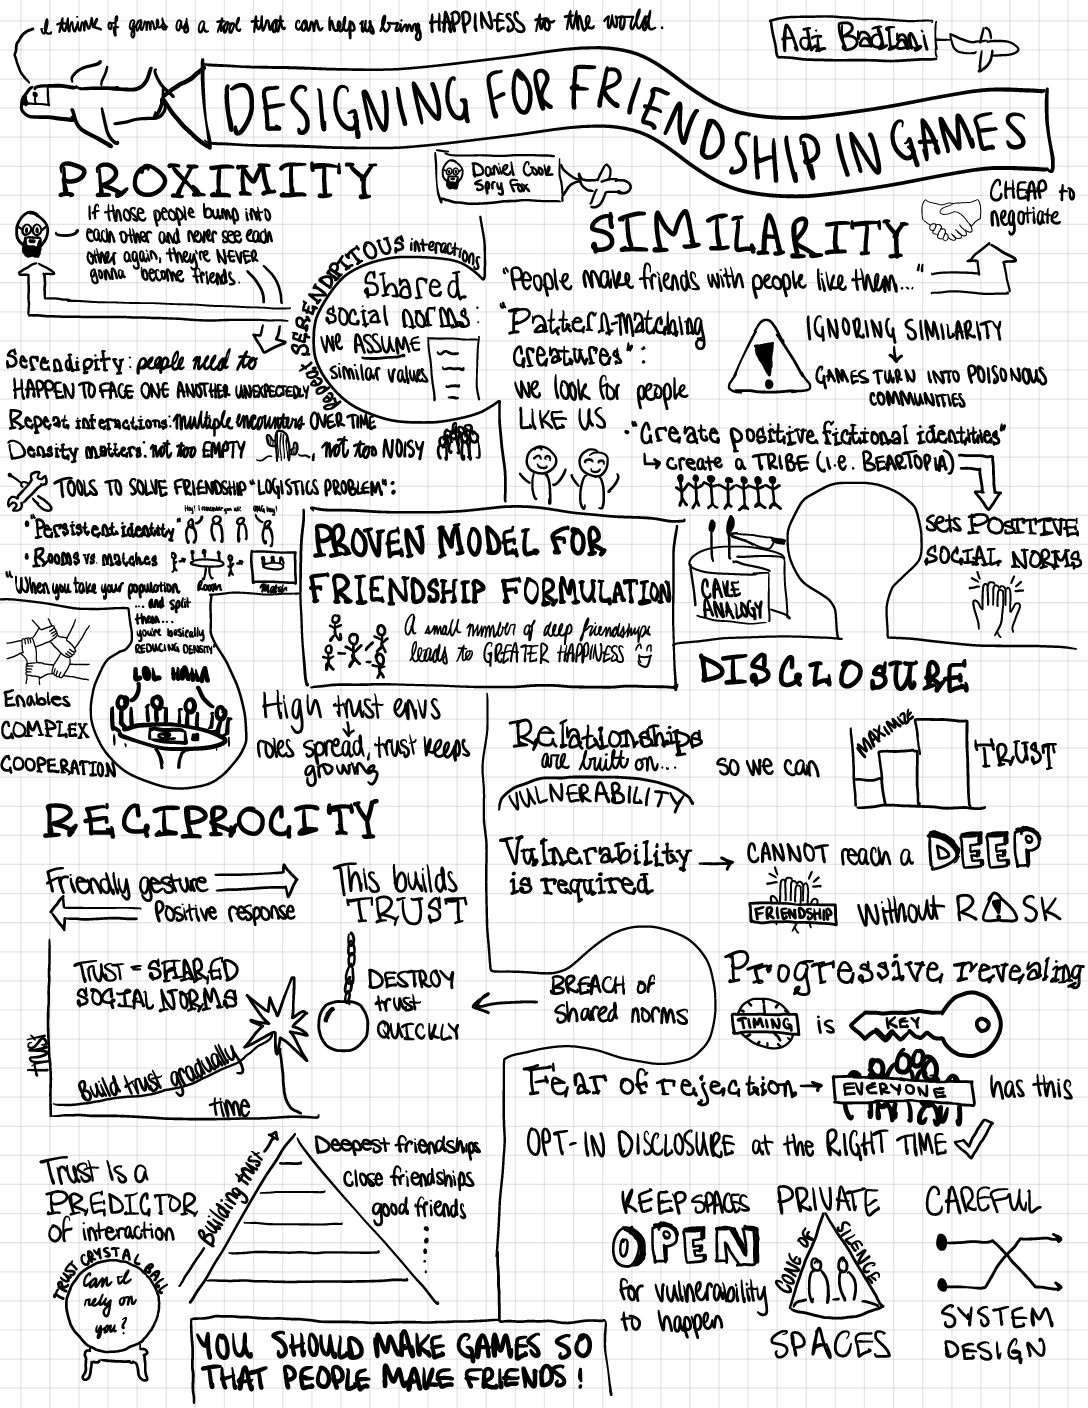 I think of games as a tool that can help us bring HAPPINESS to the world.
Adi Badlani
DESIGNING FOR FRIENDSHIP IN GAMES
Daniel Cook
Spry Fox
PROXIMITY
If those people bump into
each other and never see each
other again, they're NEVER
gonna become friends.
Repeat SERENDIPITOUS interactions
Shared
social norms:
we ASSUME
similar values
Serendipity: people need to
HAPPEN TO FACE ONE ANOTHER UNEXPECTEDLY
Repeat interactions: multiple encounters OVER TIME
Density matters: not too EMPTY, not too NOISY
TOOLS TO SOLVE FRIENDSHIP "LOGISTICS PROBLEM":
• "Persistent identity"
Hey! I remember you all!
OMG hey!
• Rooms vs. matches
Room
Match
"When you take your population
... and split
them...
you're basically
REDUCING DENSITY"
LOL HAHA
Enables
COMPLEX
COOPERATION
High trust envs
roles spread, trust keeps
growing
SIMILARITY
CHEAP to
negotiate
"People make friends with people like them..."
"Pattern-matching
creatures":
we look for people
LIKE US
IGNORING SIMILARITY
GAMES TURN INTO POISONOUS
COMMUNITIES
• "Create positive fictional identities"
create a TRIBE (i.e. BEARTOPIA)
sets POSITIVE
SOCIAL NORMS
CAKE
ANALOGY
PROVEN MODEL FOR
FRIENDSHIP FORMULATION
A small number of deep friendships
leads to GREATER HAPPINESS
RECIPROCITY
Friendly gesture
Positive response
This builds
TRUST
TRUST = SHARED
SOCIAL NORMS
trust
Build trust gradually
time
DESTROY
trust
QUICKLY
BREACH of
shared norms
Trust is a
PREDICTOR
of interaction
TRUST CRYSTAL BALL
Can I
rely on
you?
Building trust
Deepest friendships
close friendships
good friends
YOU SHOULD MAKE GAMES SO
THAT PEOPLE MAKE FRIENDS!
DISCLOSURE
Relationships
are built on...
VULNERABILITY
so we can
MAXIMIZE
TRUST
Vulnerability
is required
CANNOT reach a DEEP
FRIENDSHIP without RISK
Progressive revealing
TIMING is KEY
Fear of rejection → EVERYONE has this
OPT-IN DISCLOSURE at the RIGHT TIME
KEEP SPACES
OPEN
for vulnerability
to happen
PRIVATE
CONE OF SILENCE
SPACES
CAREFUL
SYSTEM
DESIGN